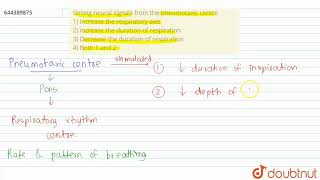 644389875
Strong neural signals from the pneumotaxic centre
1) Increase the respiratory axis
2) Increase the duration of respiration
3) Decrease the duration of respiration
4) Both 1 and 2
Pneumotaxic centre stimulated
① ↓ duration of inspiration
↓
Pons
② ↓ depth of
↓
Respiratory rhythm
centre
Rate & pattern of breathing
doubtnut